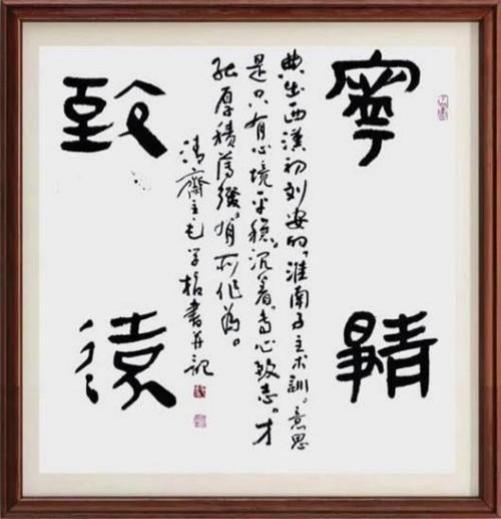 寧靜
致遠
典出西漢初刘安的《淮南子主术訓。意思
是只有心境平穩沉着、专心致志。才
能厚積薄發、有所作為。
清齋主毛学栢書并記